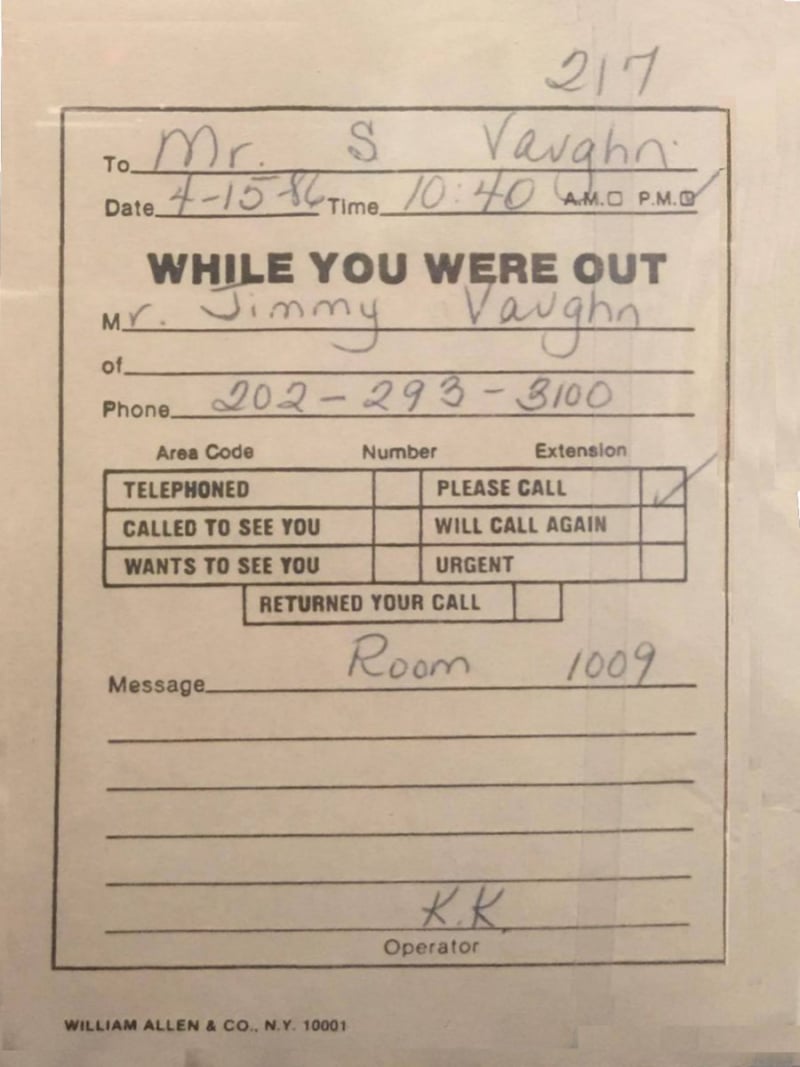 217
To Mr. S Vaughn
Date 4-15-86 Time 10:40 A.M. P.M.
WHILE YOU WERE OUT
Mr. Jimmy Vaughn
of
Phone 202-293-3100
Area Code Number Extension
TELEPHONED PLEASE CALL
CALLED TO SEE YOU WILL CALL AGAIN
WANTS TO SEE YOU URGENT
RETURNED YOUR CALL
Message Room 1009
K.K.
Operator
WILLIAM ALLEN & CO., N.Y. 10001